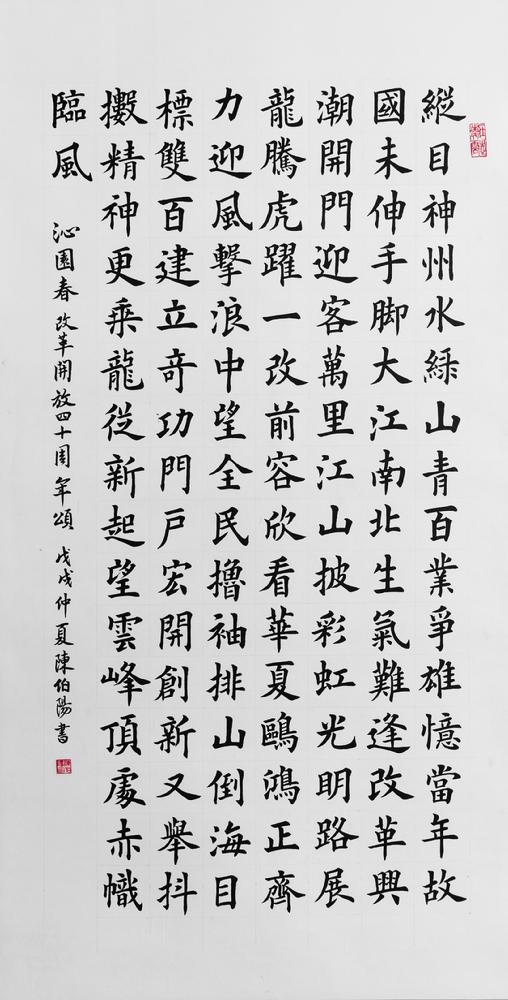 縱目神州水緑山青百業爭雄憶當年故
國未伸手脚大江南北生氣難逢改革興
潮開門迎客萬里江山披彩虹光明路展
龍騰虎躍一改前容欣看華夏鷗鴻正齊
力迎風擊浪中望全民擼袖排山倒海目
標雙百建立奇功門户宏開創新又舉抖
擻精神更乘龍從新起望雲峰頂處赤幟
臨風
沁園春 改革開放四十周年頌 戊戌仲夏陳伯陽書